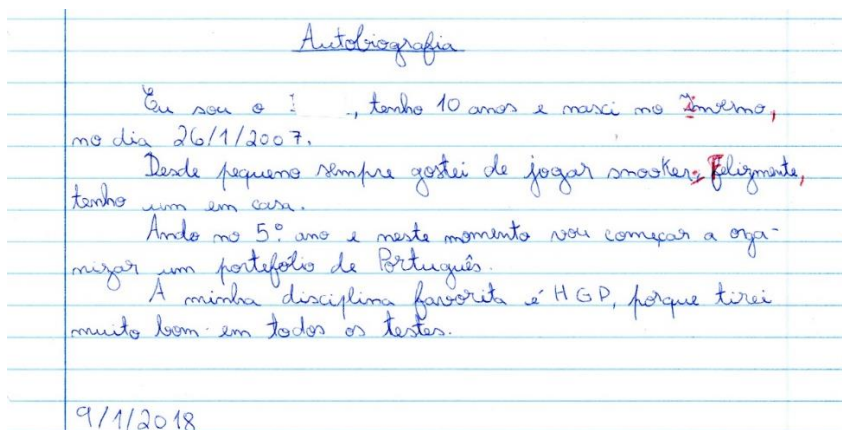 Autobiografia
Eu sou o , tenho 10 anos e nasci no Inverno,
no dia 26/1/2007.
Desde pequeno sempre gostei de jogar snooker. Felizmente,
tenho um em casa.
Ando no 5.º ano e neste momento vou começar a oga-
nizar um portefólio de Português.
A minha disciplina favorita é HGP, porque tirei
muito bom em todos os testes.
9/1/2018